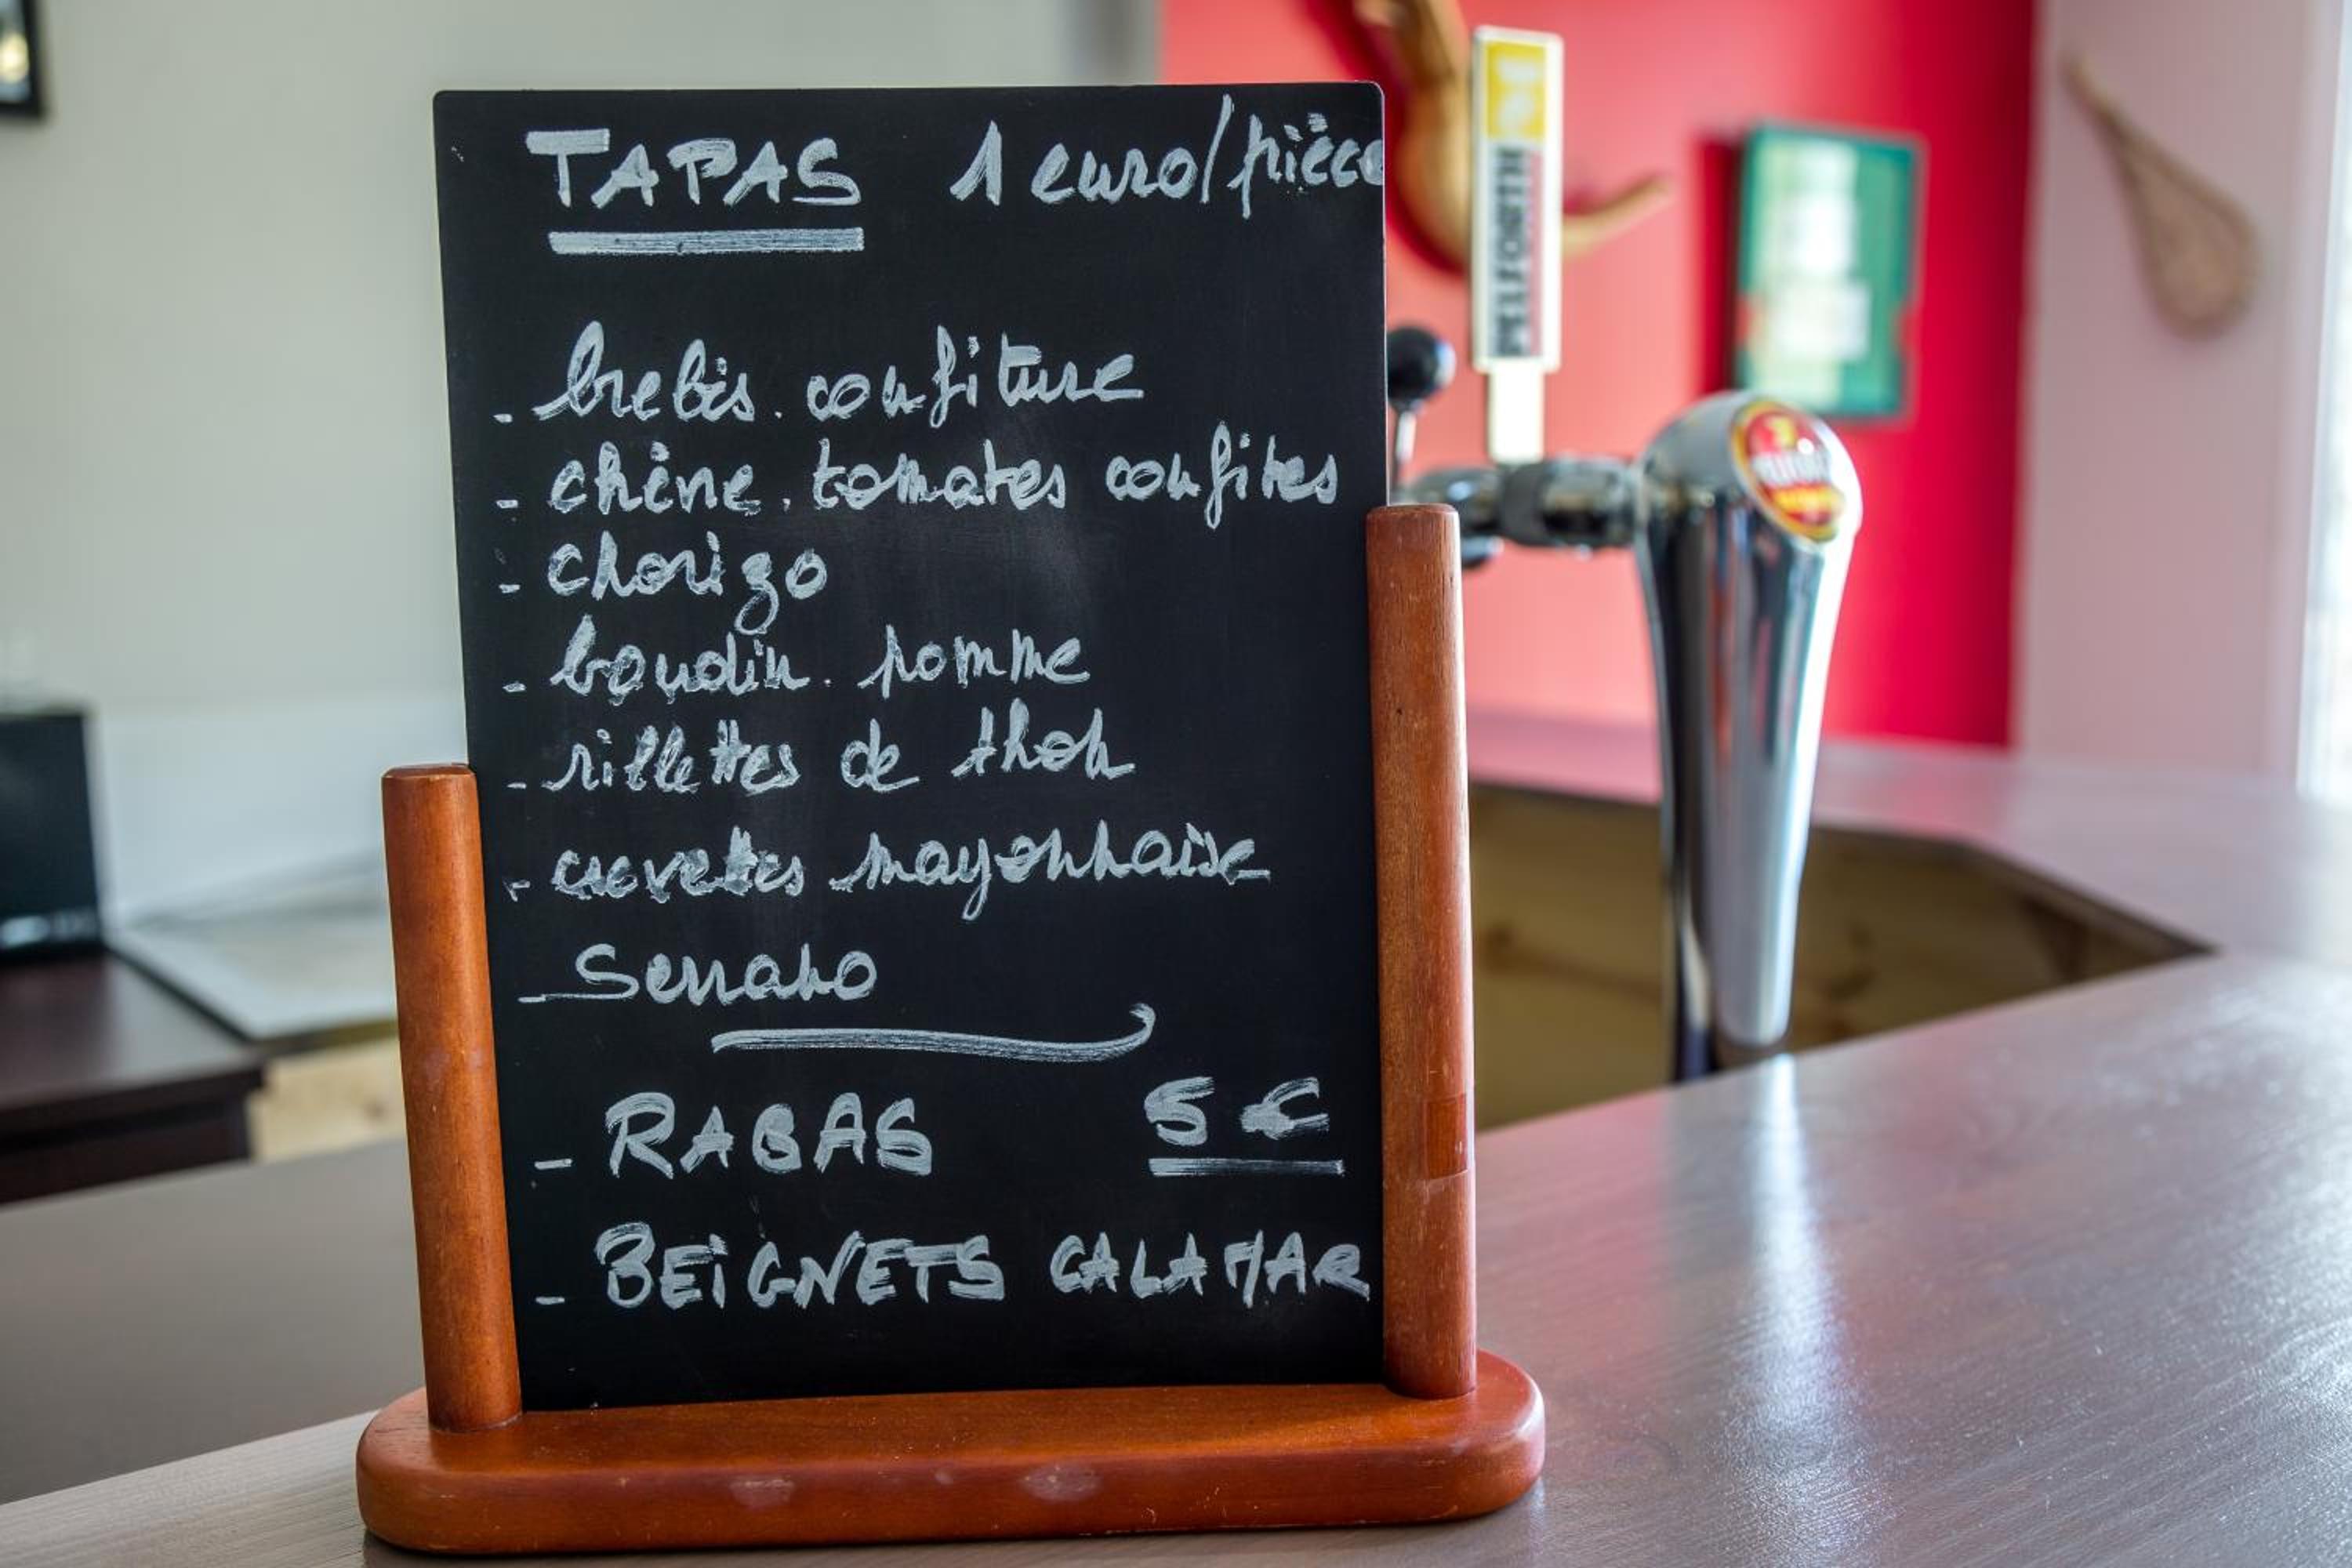 TAPAS 1 euro/pièce
- brebis. confiture
- chèvre. tomates confites
- chorizo
- boudin. pomme
- rillettes de thon
- crevettes mayonnaise
- Serrano
- RABAS 5€
- BEiGNETS CALAMAR
PELFORTH